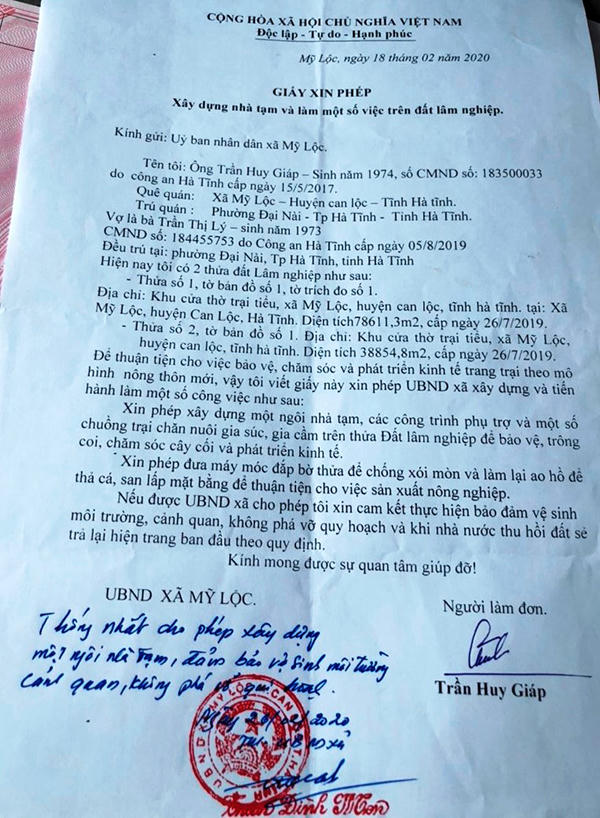 CỘNG HÒA XÃ HỘI CHỦ NGHĨA VIỆT NAM
Độc lập - Tự do - Hạnh phúc
Mỹ Lộc, ngày 18 tháng 02 năm 2020
GIẤY XIN PHÉP
Xây dựng nhà tạm và làm một số việc trên đất lâm nghiệp.
Kính gửi: Uỷ ban nhân dân xã Mỹ Lộc.
Tên tôi: Ông Trần Huy Giáp – Sinh năm 1974, số CMND số: 183500033
do công an Hà Tĩnh cấp ngày 15/5/2017.
Quê quán: Xã Mỹ Lộc – Huyện can lộc – Tĩnh Hà tĩnh.
Trú quán : Phường Đại Nài - Tp Hà Tĩnh - Tỉnh Hà Tĩnh.
Vợ là bà Trần Thị Lý – sinh năm 1973
CMND số: 184455753 do Công an Hà Tĩnh cấp ngày 05/8/2019
Đều trú tại: phường Đại Nài, Tp Hà Tĩnh, tỉnh Hà Tĩnh
Hiện nay tôi có 2 thửa đất Lâm nghiệp như sau:
- Thửa số 1, tờ bản đồ số 1, tờ trích đo số 1.
Địa chỉ: Khu cửa thờ trại tiểu, xã Mỹ Lộc, huyện can lộc, tĩnh hà tĩnh. tại: Xã
Mỹ Lộc, huyện Can Lộc, Hà Tĩnh. Diện tích78611,3m2, cấp ngày 26/7/2019.
- Thửa số 2, tờ bản đồ số 1. Địa chỉ: Khu cửa thờ trại tiểu, xã Mỹ Lộc,
huyện can lộc, tĩnh hà tĩnh. Diện tích 38854,8m2, cấp ngày 26/7/2019.
Để thuận tiện cho việc bảo vệ, chăm sóc và phát triển kinh tế trang trại theo mô
hình nông thôn mới, vậy tôi viết giấy này xin phép UBND xã xây dựng và tiến
hành làm một số công việc như sau:
Xin phép xây dựng một ngôi nhà tạm, các công trình phụ trợ và một số
chuồng trại chăn nuôi gia súc, gia cầm trên thửa Đất lâm nghiệp để bảo vệ, trông
coi, chăm sóc cây cối và phát triển kinh tế.
Xin phép đưa máy móc đắp bờ thửa để chống xói mòn và làm lại ao hồ để
thả cá, san lấp mặt bằng để thuận tiện cho việc sản xuất nông nghiệp.
Nếu được UBND xã cho phép tôi xin cam kết thực hiện bảo đảm vệ sinh
môi trường, cảnh quan, không phá vỡ quy hoạch và khi nhà nước thu hồi đất sẽ
trả lại hiện trang ban đầu theo quy định.
Kính mong được sự quan tâm giúp đỡ!
UBND XÃ MỸ LỘC.
Người làm đơn.
Thống nhất cho phép xây dựng
một ngôi nhà tạm, đảm bảo vệ sinh môi trường
cảnh quan, không phá vỡ quy hoạch.
Ngày 20/02/2020
Trần Huy Giáp